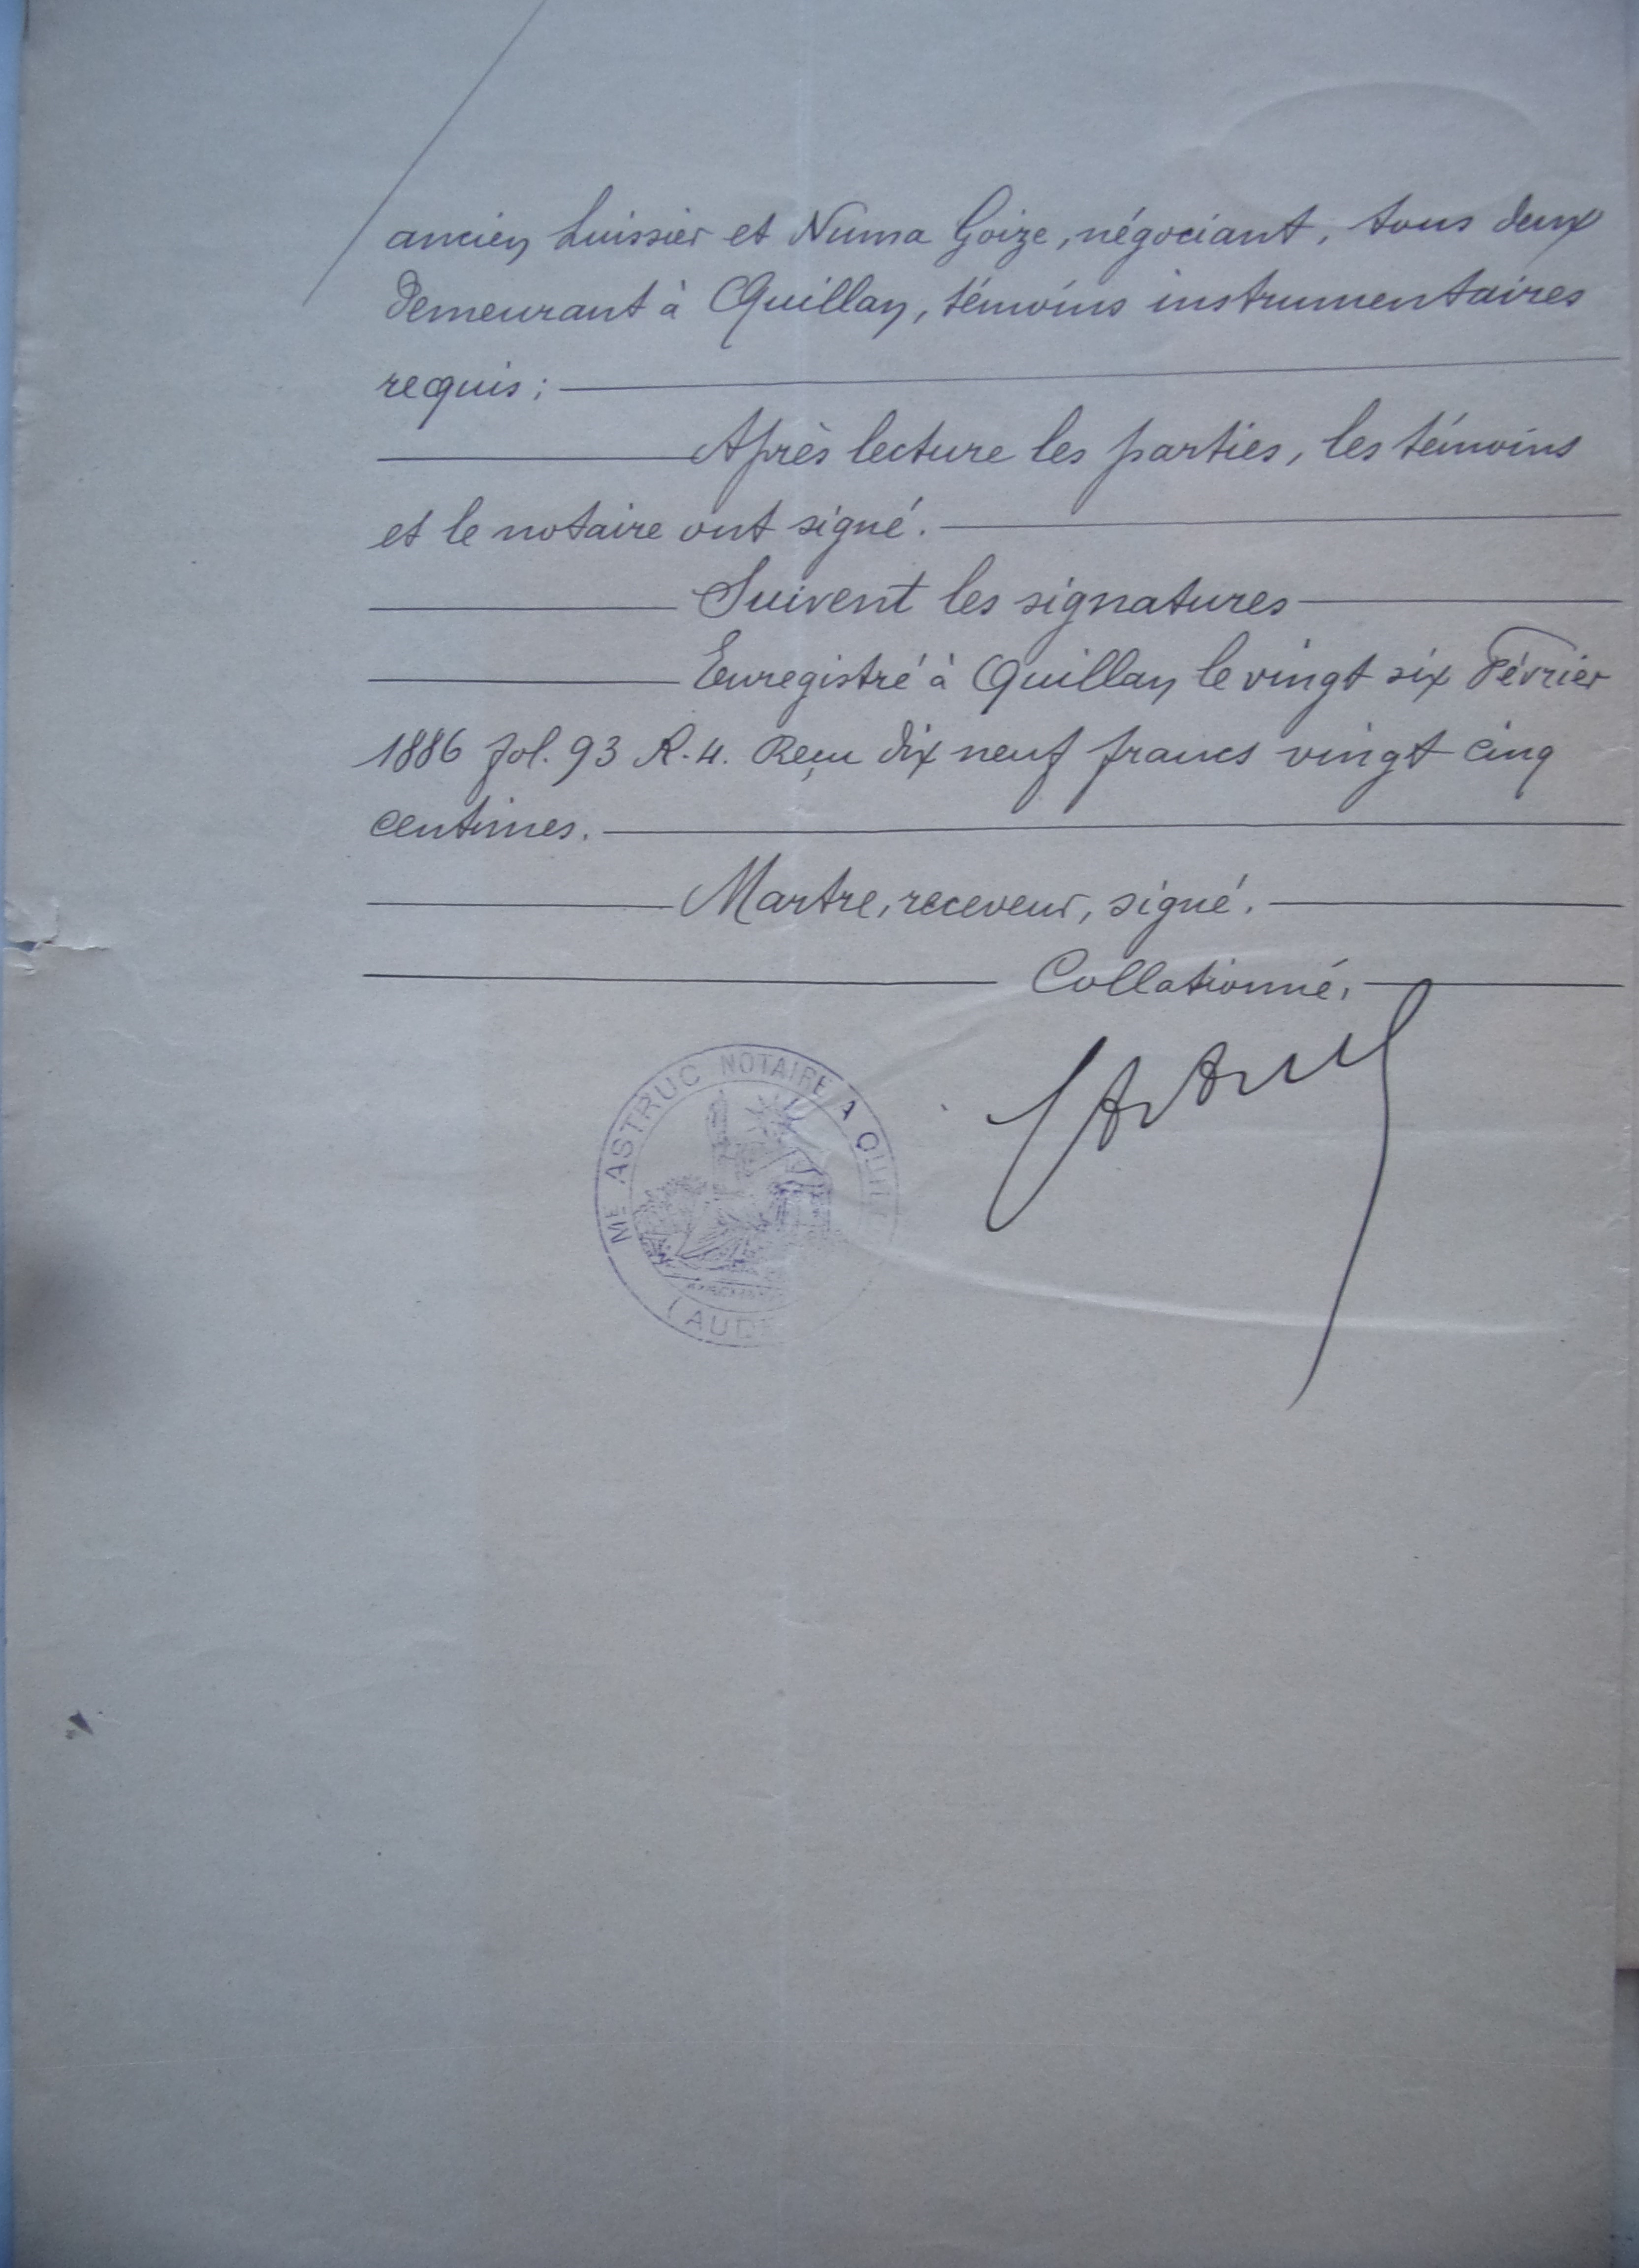 ancien huissier et Numa Goize, négociant, tous deux
demeurant à Quillan, témoins instrumentaires
requis;
Après lecture les parties, les témoins
et le notaire ont signé.
Suivent les signatures
Enregistré à Quillan le vingt six Février
1886 fol. 93 R. 4. Reçu dix neuf francs vingt cinq
centimes.
Martre, receveur, signé.
Collationné.
ME ASTRUC NOTAIRE A QUILL
(AUDE